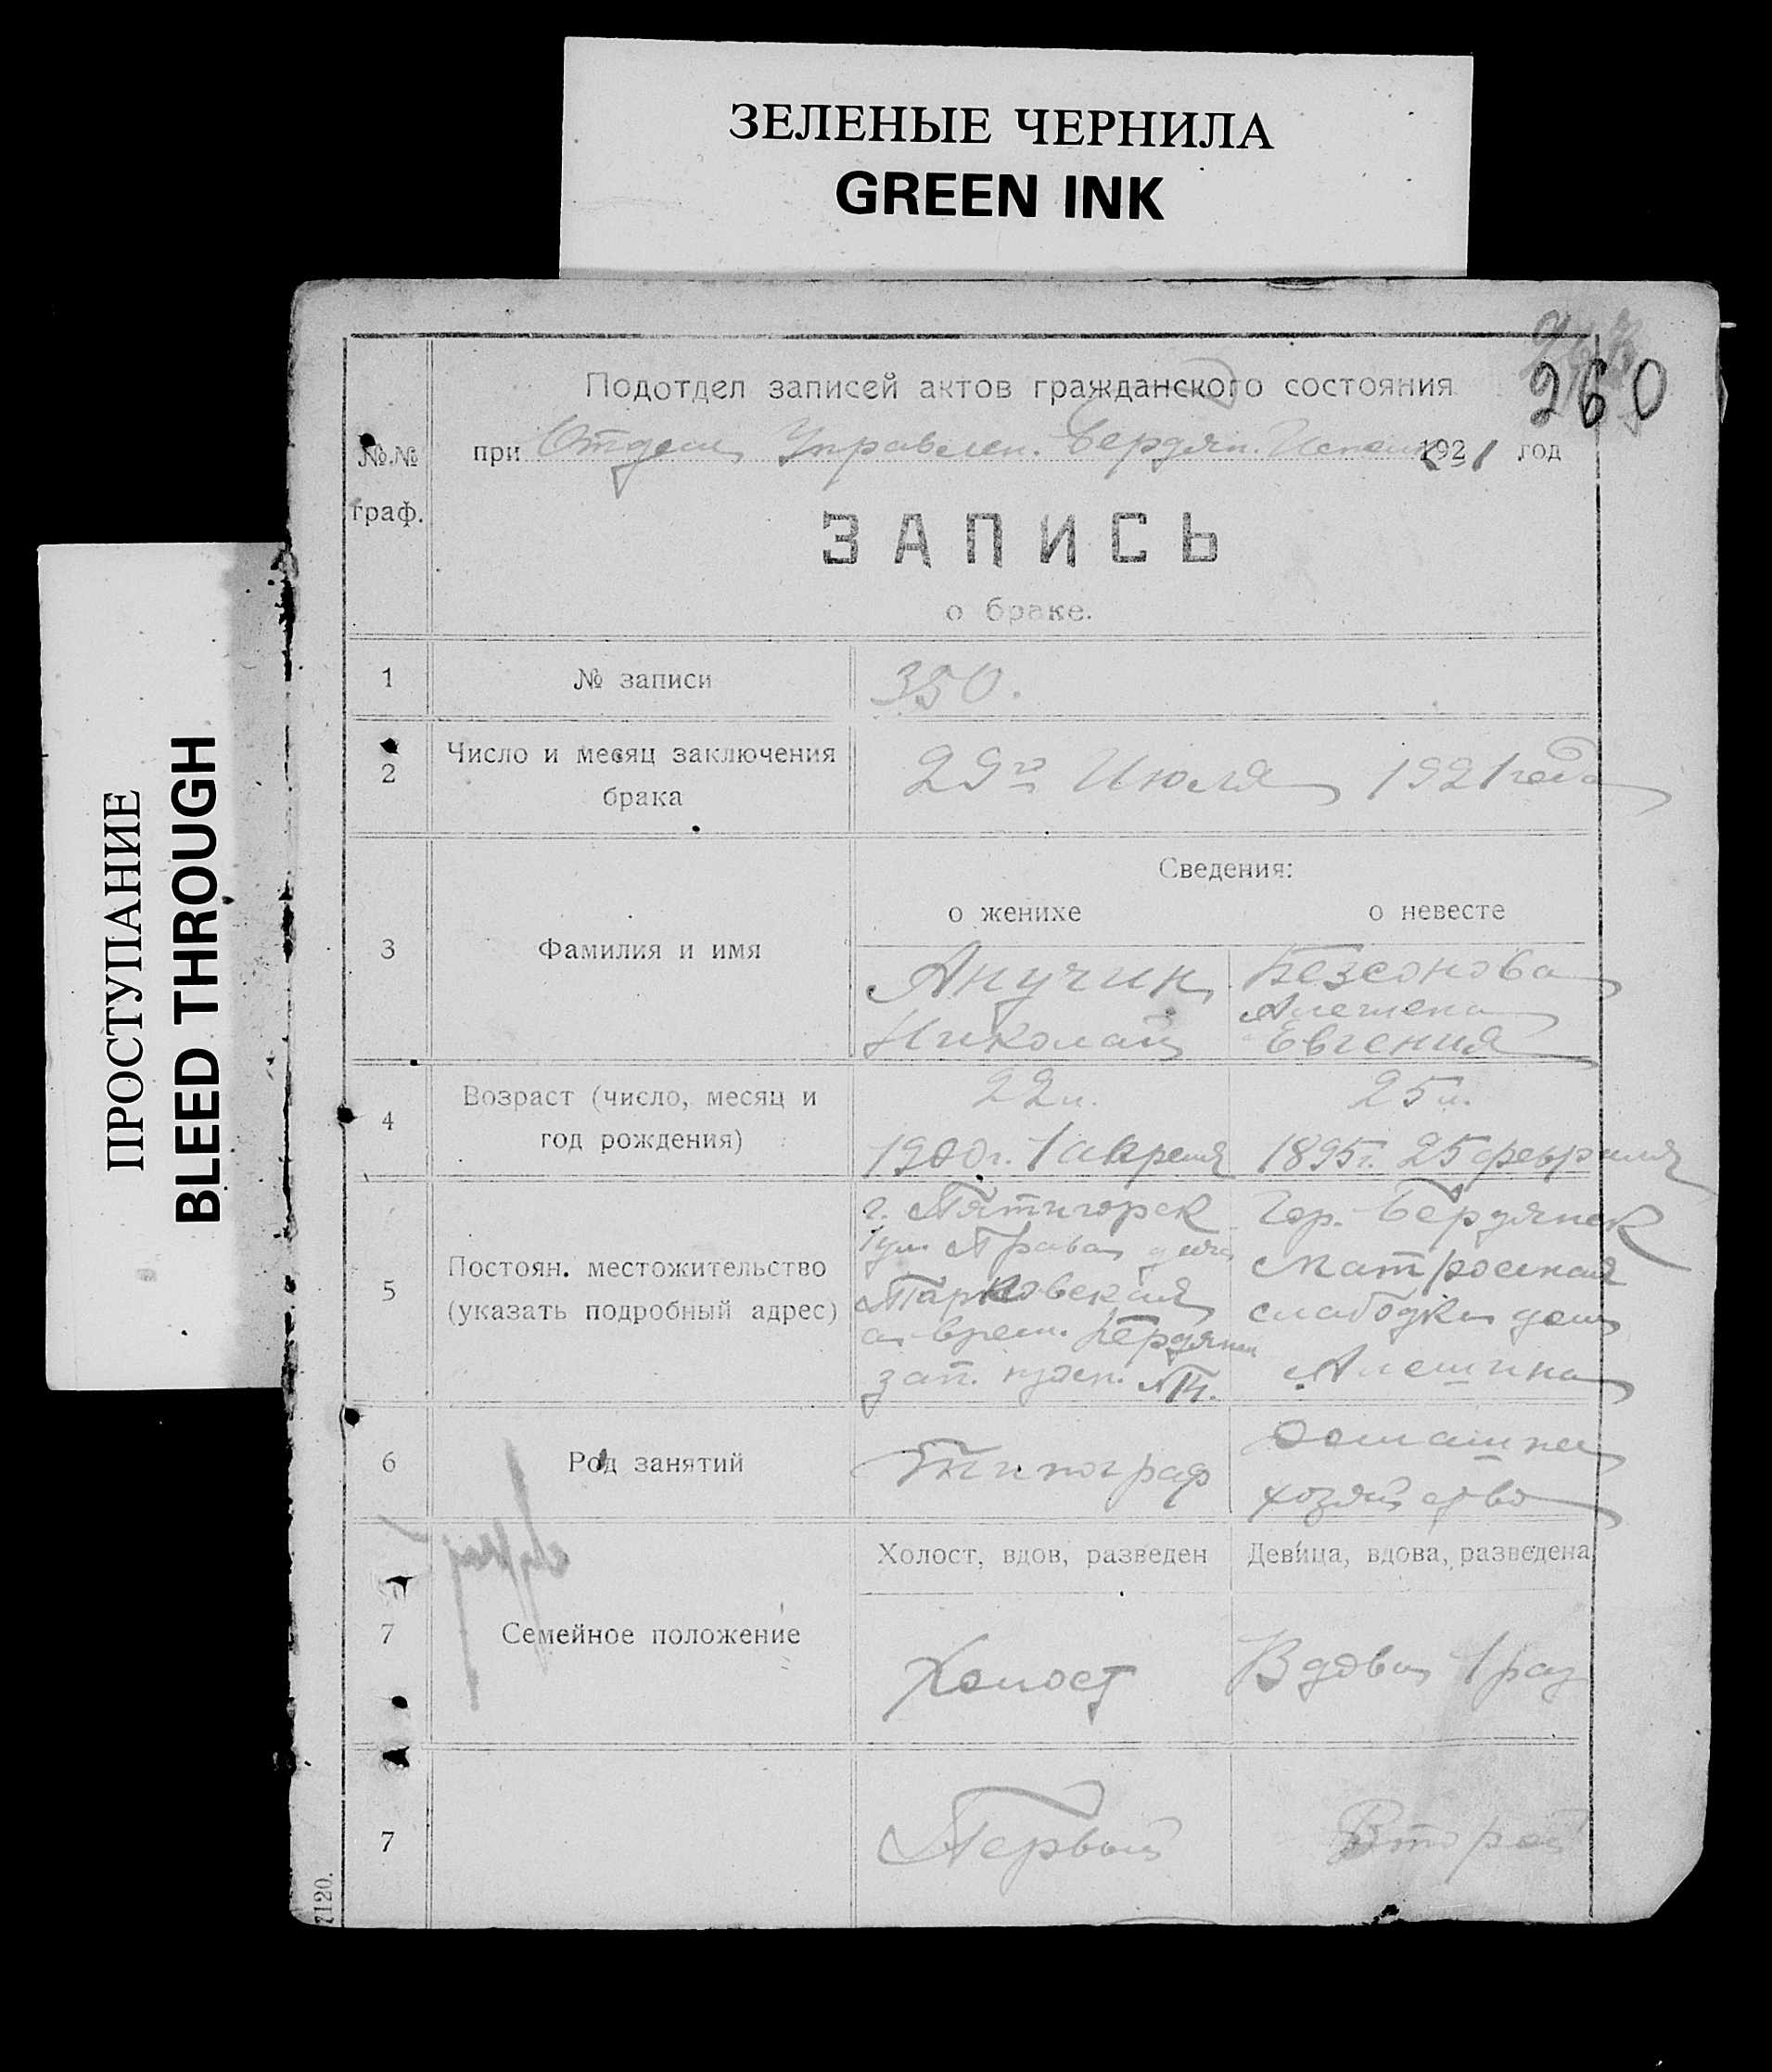 ЗЕЛЕНЫЕ ЧЕРНИЛА
GREEN INK
ПРОСТУПАНИЕ
BLEED THROUGH
260
Подотдел записей актов гражданского состояния
№.№ граф.
при Отделе Управлен. Бердян. 1921 год
ЗАПИСЬ
о браке.
1 № записи 350.
2 Число и месяц заключения брака 29го Июля 1921 года
Сведения:
о женихе о невесте
3 Фамилия и имя
Анучин Безсонова
Алешена
Николай Евгения
4 Возраст (число, месяц и год рождения)
22 л. 25 л.
1900 г. 1 апреля 1895 г. 25 февраля
5 Постоян. местожительство (указать подробный адрес)
г. Пятигорск Гор. Бердянск
Матросская
слабодка дом
а врем. Бердянск
Алешина
6 Род занятий
Типограф домашнее
хозяйство
Холост, вдов, разведен Девица, вдова, разведена
7 Семейное положение
Холост Вдова 1 раз
7 Первый Второй
7120.